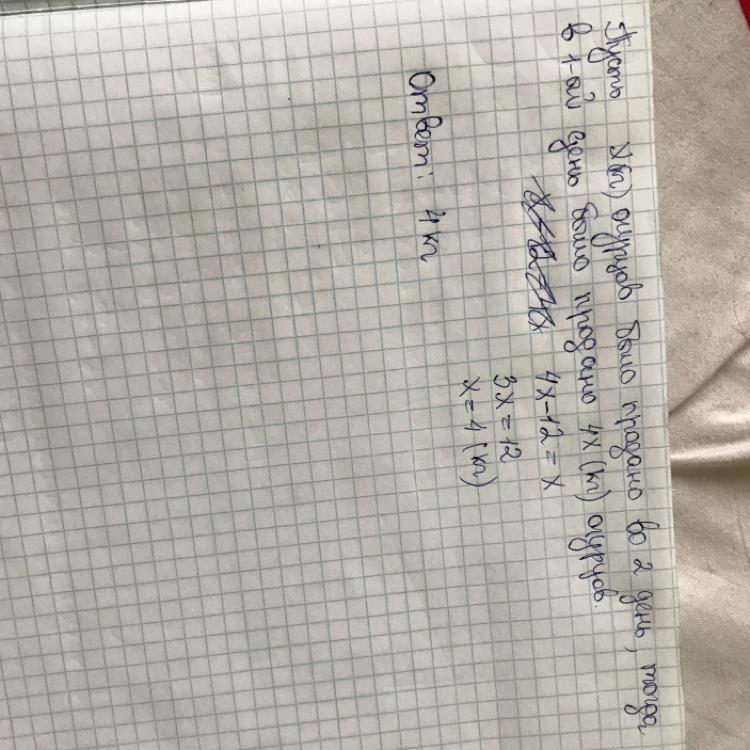 Пусть x(кг) огурцов было продано во 2 день, тогда
в 1-ой день было продано 4x(кг) огурцов.
4x-12=x
3x=12
x=4(кг)
Ответ: 4кг